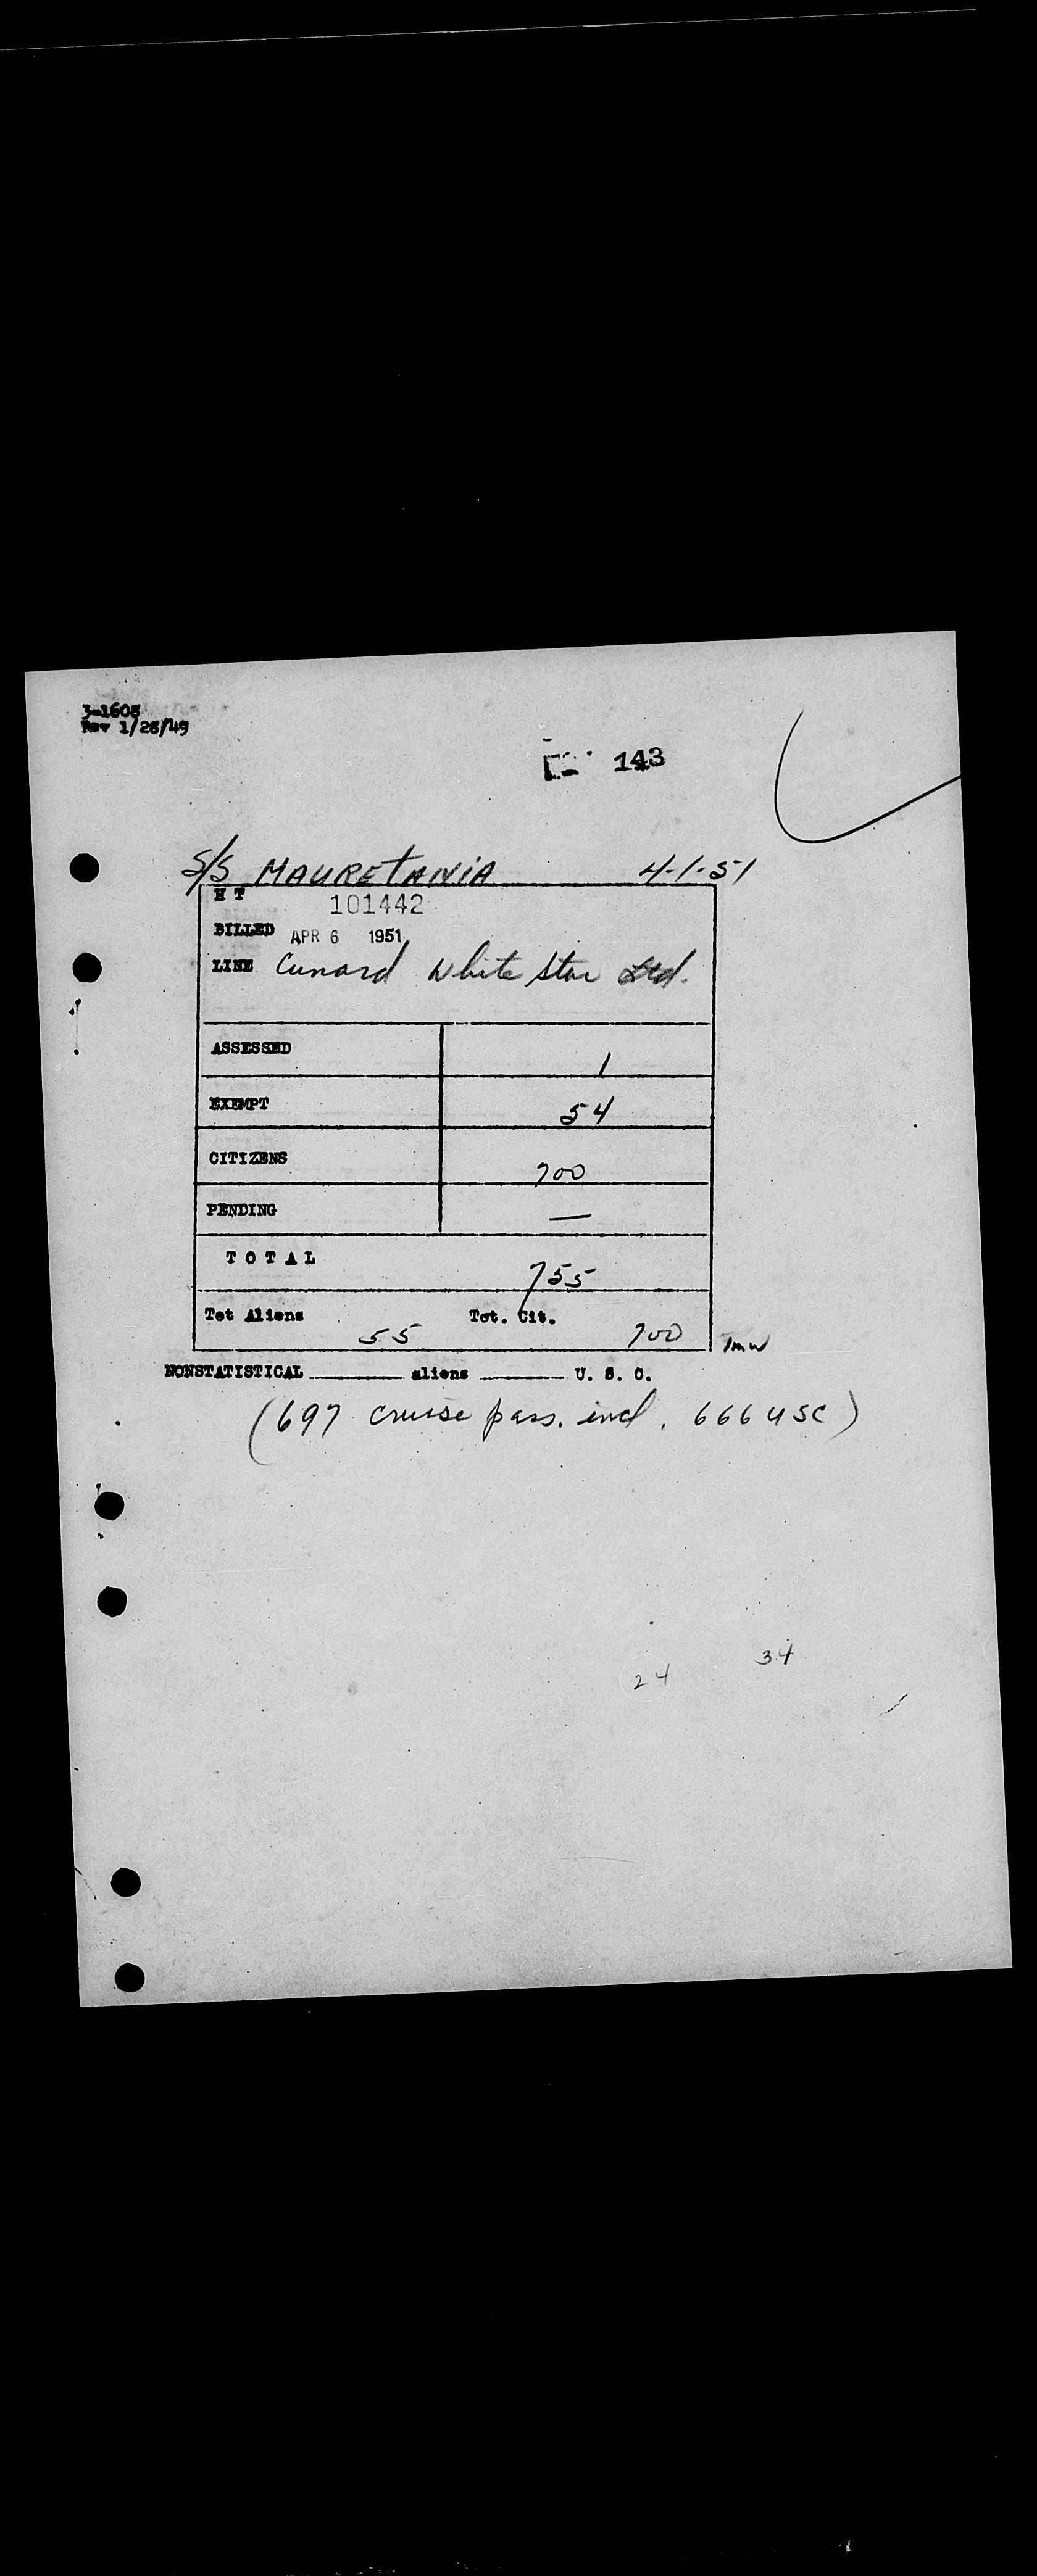 3-1608
Rev 1/26/49
143
S/S MAURETANIA 4-1-51
H T 101442
BILLED APR 6 1951
LINE Cunard White Star Ltd.
ASSESSED 1
EXEMPT 54
CITIZENS 700
PENDING —
TOTAL 755
Tot Aliens 55 Tot. Cit. 700
NONSTATISTICAL ______ aliens ______ U. S. C.
(697 cruise pass. incl. 666 USC)
34
24